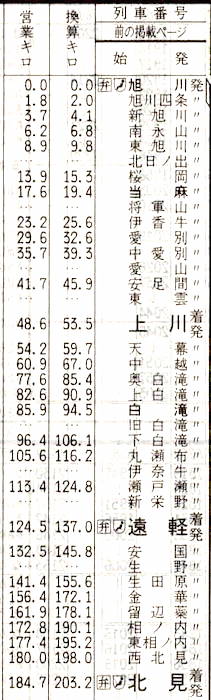 営業キロ 換算キロ 列車番号
前の掲載ページ
始発
0.0 0.0 弁 ノ 旭川 発
1.8 2.0 旭川四条 〃
3.7 4.1 新旭川 〃
6.2 6.8 南永山 〃
8.9 9.8 東旭川 〃
… … 北日ノ出 〃
13.9 15.3 桜岡 〃
17.6 19.4 当麻 〃
… … 将軍山 〃
23.2 25.6 伊香牛 〃
29.6 32.6 愛別 〃
35.7 39.3 中愛別 〃
… … 愛山 〃
41.7 45.9 安足間 〃
… … 東雲 〃
48.6 53.5 上川 着発
54.2 59.7 天幕 〃
60.9 67.0 中越 〃
77.6 85.4 奥白滝 〃
82.6 90.9 上白滝 〃
85.9 94.5 白滝 〃
… … 旧白滝 〃
96.4 106.1 下白滝 〃
105.6 116.2 丸瀬布 〃
… … 伊奈牛 〃
113.4 124.8 瀬戸瀬 〃
… … 新栄野 〃
124.5 137.0 弁 ノ 遠軽 着発
132.5 145.8 安国 〃
… … 生野 〃
141.4 155.6 生田原 〃
156.4 172.1 金華 〃
161.9 178.1 留辺蘂 〃
172.8 190.1 相ノ内 〃
177.4 195.2 東相ノ内 〃
180.0 198.0 西北見 〃
184.7 203.2 弁 ノ 北見 着発